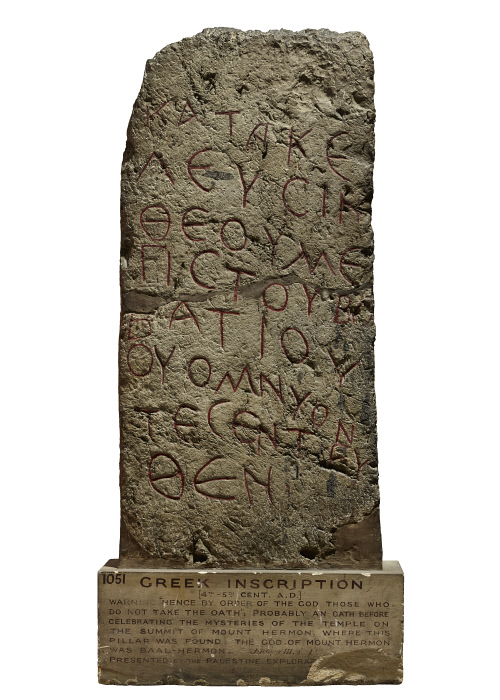 ΚΑΤΑΚΕ
ΛΕΥϹΙΚ
ΘΕΟΥΜΕ
ΠϹΤΟΥΒ
ΒΑΤΙΟΥ
ΟΥΟΜΝΥΟΝ
ΤΕϹΕΝΤΕΥ
ΘΕΝ
1051 GREEK INSCRIPTION
[4TH-5TH CENT. A.D.]
WARNING HENCE BY ORDER OF THE GOD THOSE WHO
DO NOT TAKE THE OATH; PROBABLY AN OATH BEFORE
CELEBRATING THE MYSTERIES OF THE TEMPLE ON
THE SUMMIT OF MOUNT HERMON, WHERE THIS
PILLAR WAS FOUND. THE GOD OF MOUNT HERMON
WAS BAAL-HERMON.
PRESENTED BY THE PALESTINE